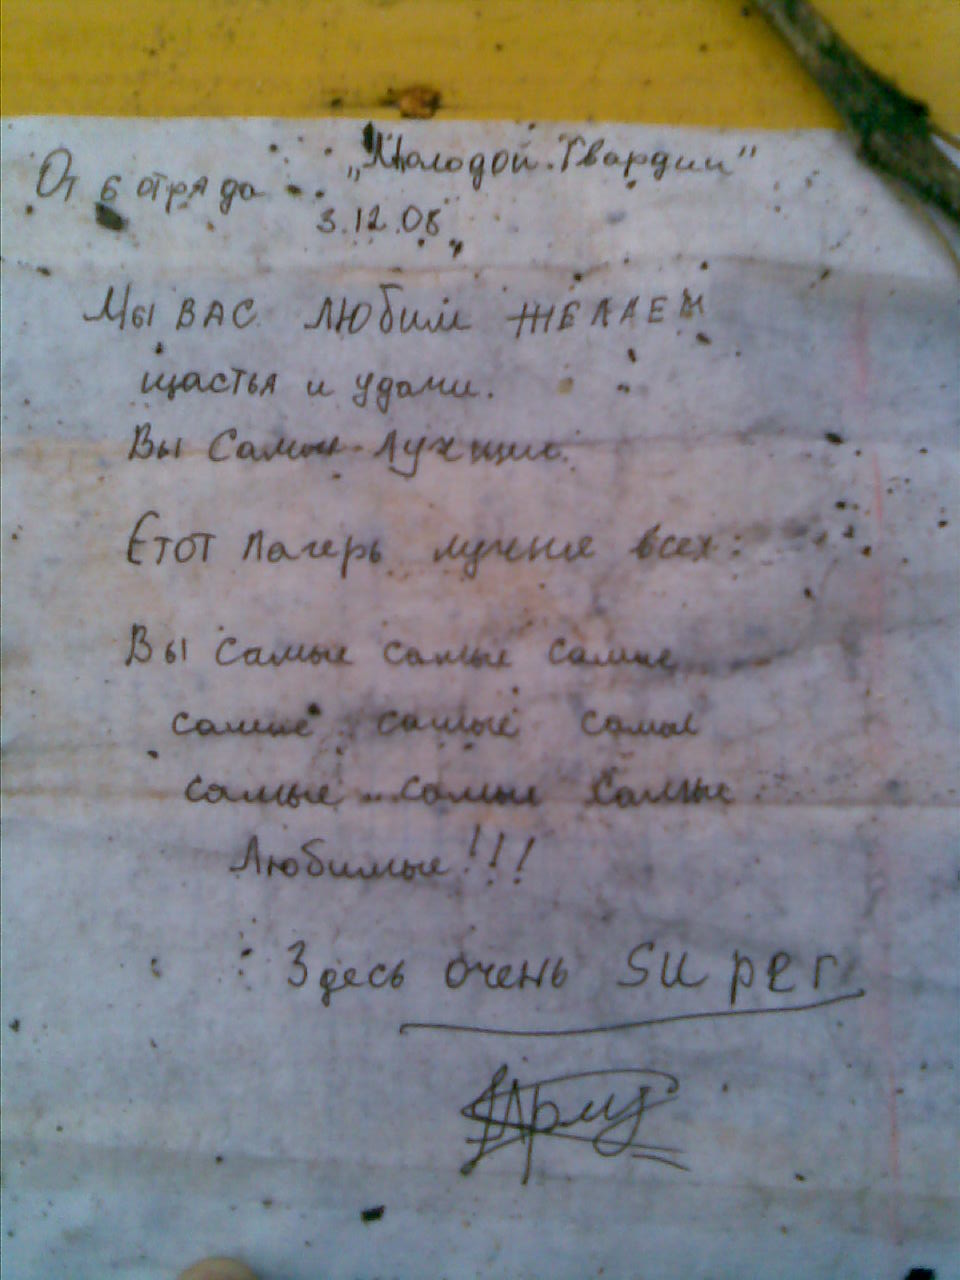 „Молодой Гвардии"
От 6 отряда
3.12.08
Мы ВАС любим ЖЕЛАЕМ
щастья и удачи.
Вы Самые лучшие.
Етот лагерь лучше всех.
Вы самые самые самые
самые самые самые
самые самые самые
Любимые!!!
Здесь очень super